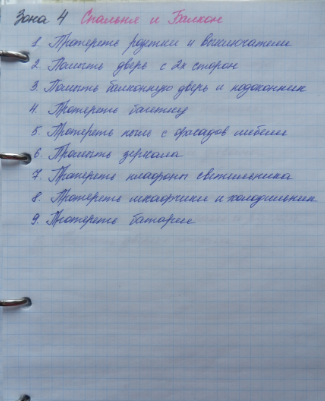 Зона 4 Спальня и Балкон
1. Протереть розетки и выключатели
2. Помыть дверь с 2х сторон
3. Помыть балконную дверь и подоконник
4. Протереть
5. Протереть пыль с фасадов мебели
6. Промыть зеркала
7. Протереть плафоны светильника
8. Протереть шкафчики и холодильник
9. Протереть батарею